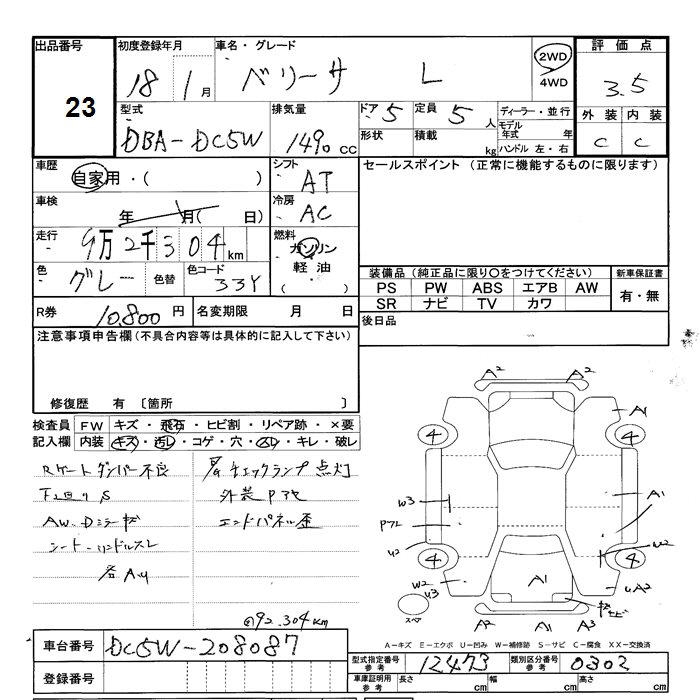 出品番号
23
初度登録年月
18 1月
車名・グレード
ベリーサ L
2WD
4WD
評価点
3.5
外装 内装
C C
型式
DBA-DC5W
排気量
1490 CC
ドア 5
定員 5人
形状
積載 kg
ディーラー・並行
モデル年式 年
ハンドル 左・右
車歴
自家用・( )
シフト
AT
セールスポイント (正常に機能するものに限ります)
車検
年 月( 日)
冷房
AC
走行
9万2千304km
燃料
ガソリン
軽油
( ・ )
色
グレー
色替
色コード
33Y
装備品 (純正品に限り○をつけてください)
PS PW ABS エアB AW
SR ナビ TV カワ
新車保証書
有・無
R券 10,800円
名変期限 月 日
後日品
注意事項申告欄(不具合内容等は具体的に記入して下さい)
修復歴 有 〔箇所 〕
検査員記入欄
FW キズ・飛石・ヒビ割・リペア跡・×要
内装 キズ・汚レ・コゲ・穴・スレ・キレ・破レ
Rゲートダンパー不良
チェックランプ点灯
S
外装
AW、Dミラーキズ
エンドパネル歪
シート・ハンドルスレ
各AU
92,304km
A2 A2
A1
4 4
W3
A1
U2
4 4
W2
U3
A1
スペア
A2 A1 A3
A=キズ E=エクボ U=凹み W=補修跡 S=サビ C=腐食 XX=交換済
車台番号 DC5W-208087
登録番号
型式指定番号 参考 12473
類別区分番号 参考 0302
車庫証明用 参考 長さ cm 幅 cm 高さ cm